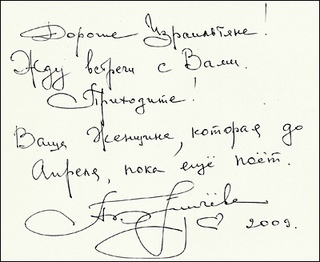 Дорогие Израильтяне!
Жду встречи с Вами.
Приходите!
Ваша Женщина, которая до
Апреля, пока ещё поёт.
2009.